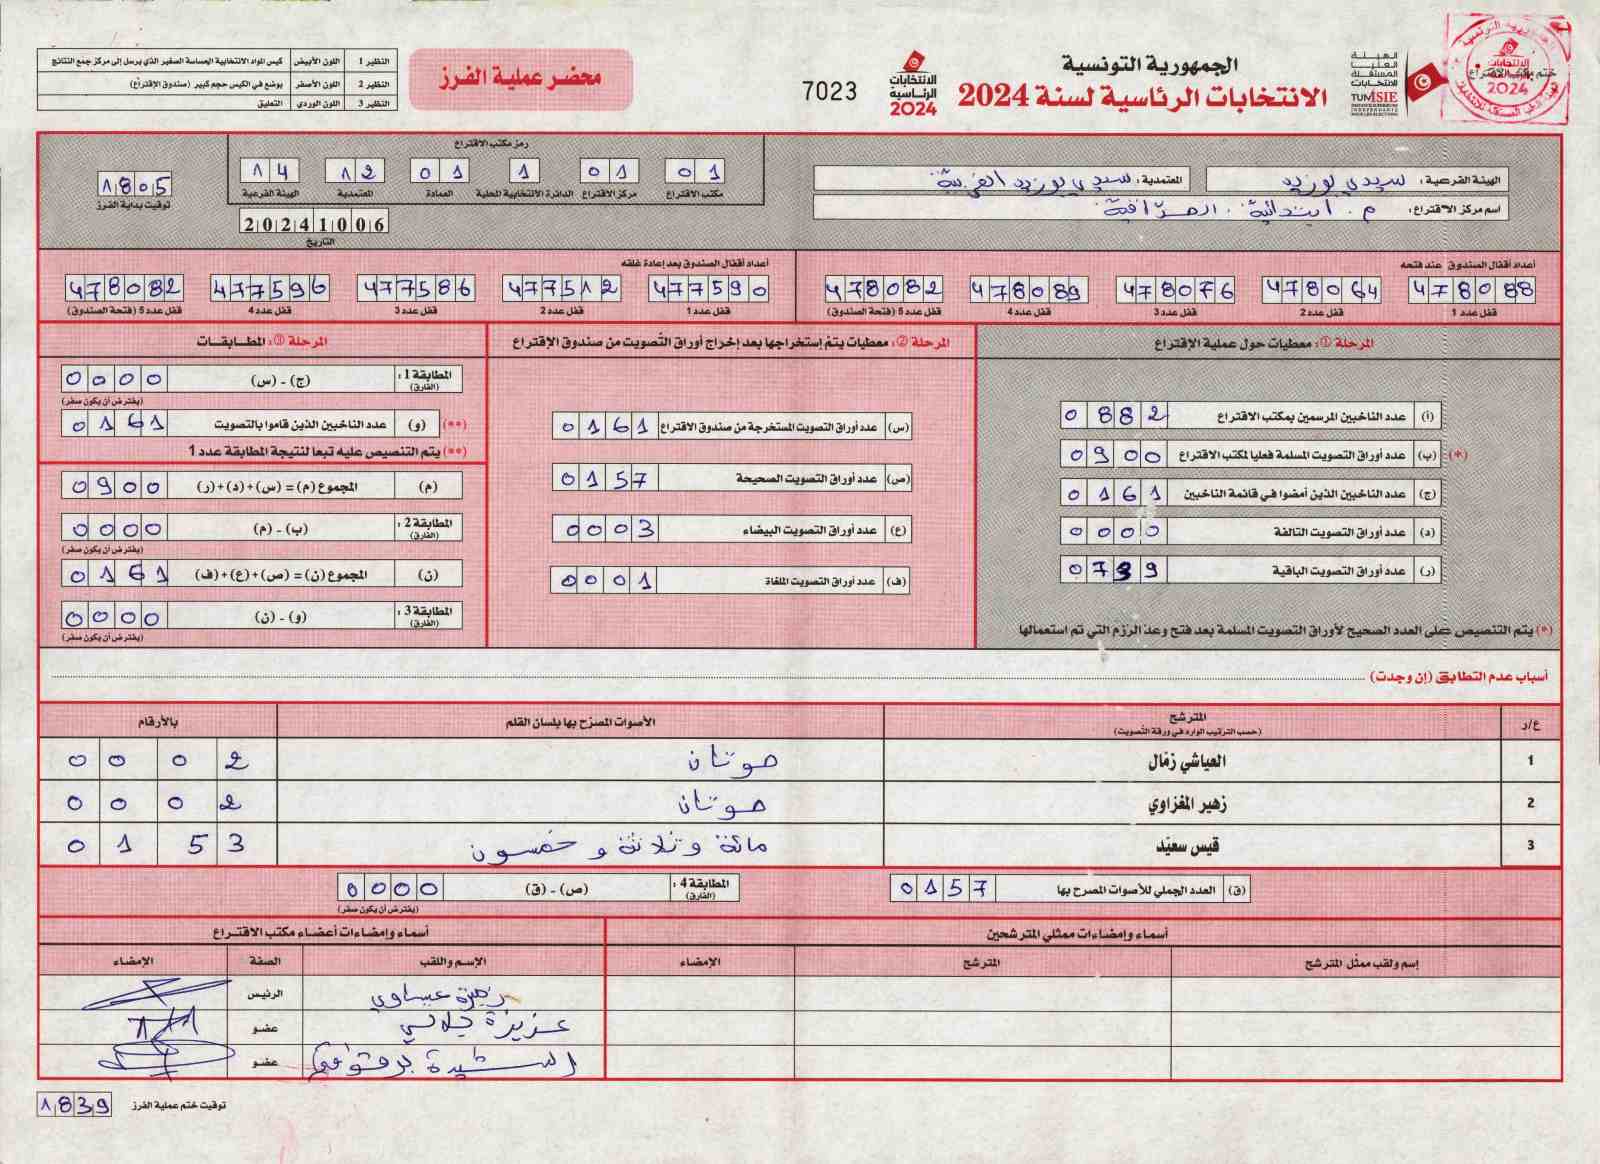 الجمهورية التونسية
الانتخابات الرئاسية لسنة 2024
الهيئة
العليا
المستقلة
للانتخابات
TUNISIE
الانتخابات
الرئاسية
2024
7023
محضر عملية الفرز
النظير 1 اللون الأبيض كيس المواد الانتخابية الحساسة الصغير الذي يرسل إلى مركز جمع النتائج
النظير 2 اللون الأصفر يوضع في الكيس حجم كبير (صندوق الإقتراع)
النظير 3 اللون الوردي التعليق
ختم مكتب الاقتراع
الهيئة الفرعية : سيدي بوزيد
المعتمدية : سيدي بوزيد الغربية
اسم مركز الاقتراع : م. ابتدائية
رمز مكتب الاقتراع
01 01 1 01 12 14
مكتب الاقتراع مركز الاقتراع الدائرة الانتخابية المحلية العمادة المعتمدية الهيئة الفرعية
20241006
التاريخ
1805
توقيت بداية الفرز
أعداد أقفال الصندوق عند فتحه
478088 478064 478076 478089 478082
قفل عدد 1 قفل عدد 2 قفل عدد 3 قفل عدد 4 قفل عدد 5 (فتحة الصندوق)
أعداد أقفال الصندوق بعد إعادة غلقه
477590 477512 477586 477596 478082
قفل عدد 1 قفل عدد 2 قفل عدد 3 قفل عدد 4 قفل عدد 5 (فتحة الصندوق)
المرحلة ①: معطيات حول عملية الإقتراع
(أ) عدد الناخبين المرسمين بمكتب الاقتراع 0882
(*) (ب) عدد أوراق التصويت المسلمة فعليا لمكتب الاقتراع 0900
(ج) عدد الناخبين الذين أمضوا في قائمة الناخبين 0161
(د) عدد أوراق التصويت التالفة 0000
(ر) عدد أوراق التصويت الباقية 0739
(*) يتم التنصيص على العدد الصحيح لأوراق التصويت المسلمة بعد فتح وعد الرزم التي تم استعمالها
المرحلة ②: معطيات يتم إستخراجها بعد إخراج أوراق التصويت من صندوق الإقتراع
(س) عدد أوراق التصويت المستخرجة من صندوق الاقتراع 0161
(ص) عدد أوراق التصويت الصحيحة 0157
(ع) عدد أوراق التصويت البيضاء 0003
(ف) عدد أوراق التصويت الملغاة 0001
المرحلة ③: المطابقات
المطابقة 1 : (الفارق) (ج) - (س) 0000
(يفترض أن يكون صفر)
(**) (و) عدد الناخبين الذين قاموا بالتصويت 0161
(**) يتم التنصيص عليه تبعا لنتيجة المطابقة عدد 1
(م) المجموع (م) = (س)+(د)+(ر) 0900
المطابقة 2 : (الفارق) (ب) - (م) 0000
(يفترض أن يكون صفر)
(ن) المجموع (ن) = (ص)+(ع)+(ف) 0161
المطابقة 3 : (الفارق) (و) - (ن) 0000
(يفترض أن يكون صفر)
أسباب عدم التطابق (إن وجدت)
ع/ر المترشح الأصوات المصرّح بها بلسان القلم بالأرقام
(حسب الترتيب الوارد في ورقة التصويت)
1 العياشي زمّال صوتان 0002
2 زهير المغزاوي صوتان 0002
3 قيس سعيّد مائة وثلاثة وخمسون 0153
(ق) العدد الجملي للأصوات المصرح بها 0157
المطابقة 4 : (الفارق) (ص) - (ق) 0000
(يفترض أن يكون صفر)
أسماء وإمضاءات ممثلي المترشحين
إسم ولقب ممثل المترشح المترشح الإمضاء
أسماء وإمضاءات أعضاء مكتب الاقتراع
الإسم واللقب الصفة الإمضاء
عيساوي الرئيس
عزيزة جلالي عضو
عضو
توقيت ختم عملية الفرز 1839